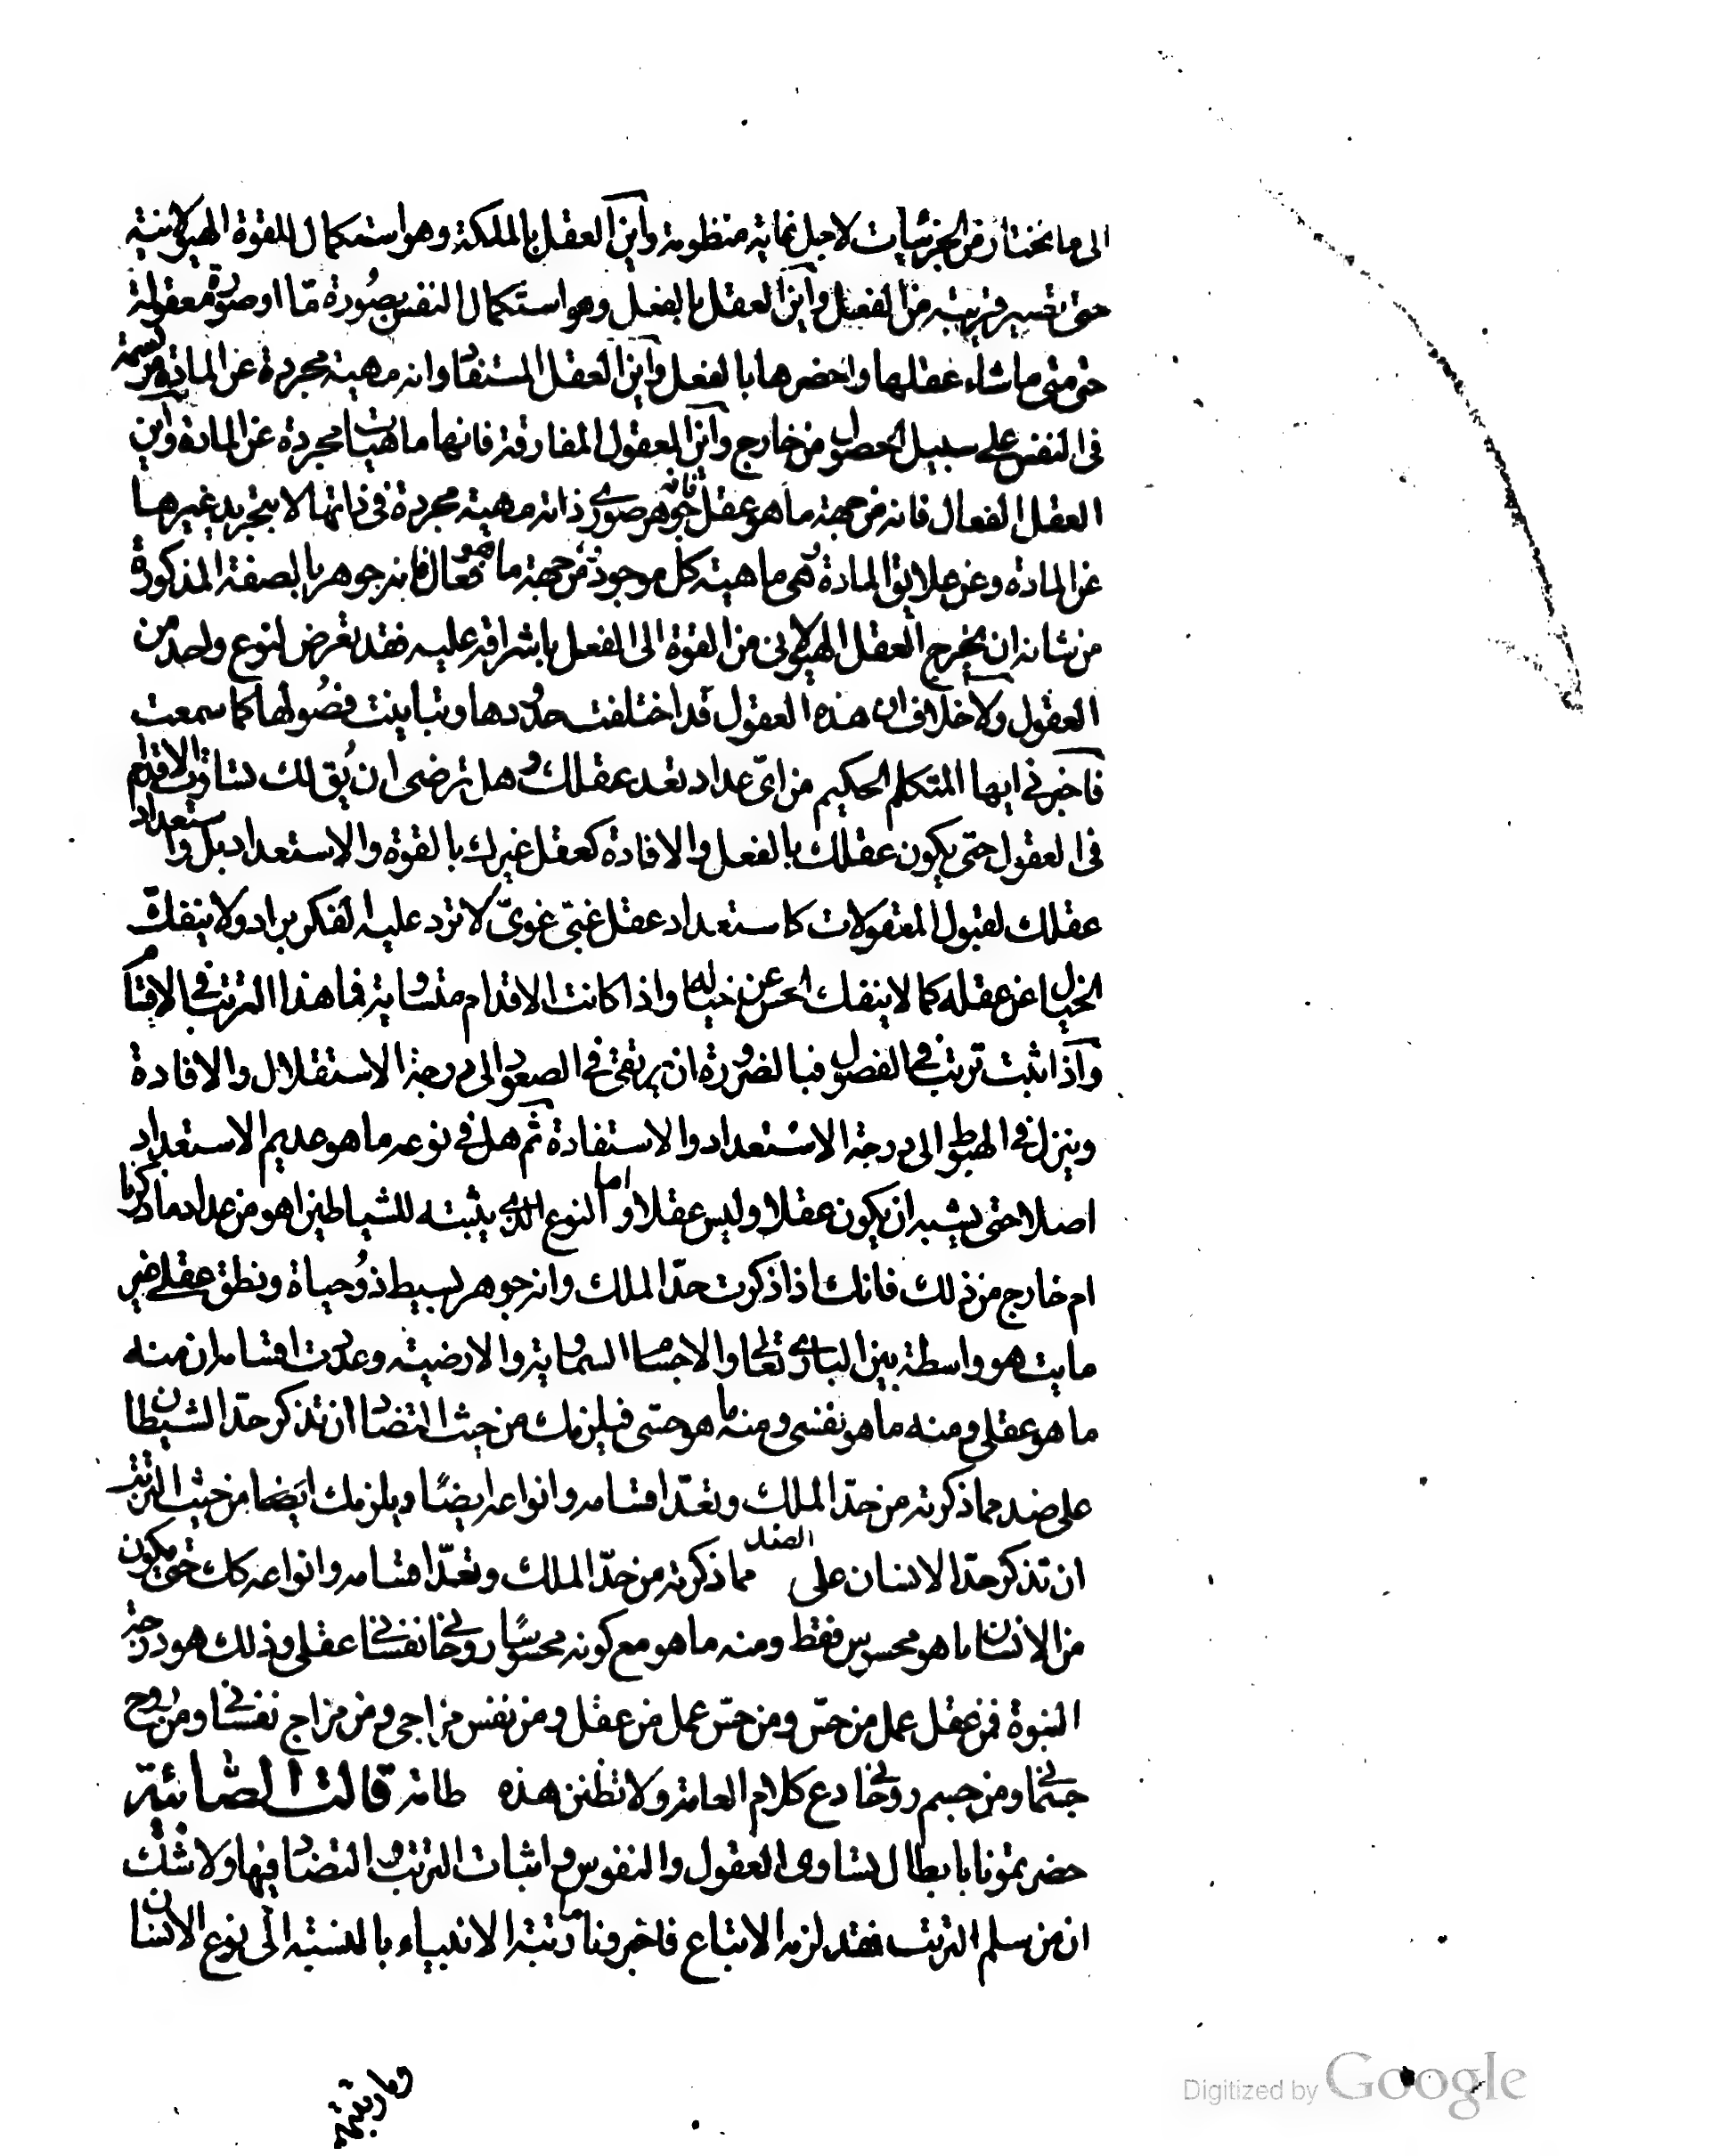 الى ما يختار من الجزئيات لاجل غاية مظنونة واين العقل بالملكة وهو استكمال للقوة الهيولانية
حتى تصير قريبة من الفعل واين العقل بالفعل وهو استكمال النفس بصورة ما او صورة معقولة
حتى متى ما شاء عقلها واحضرها بالفعل واين العقل المستفاد وانه مهية مجردة عن المادة مرتسمة
فى النفس على سبيل الحصول من خارج واين العقول المفارقة فانها ماهيات مجردة عن المادة واين
العقل الفعال فانه من جهة ما هو عقل فانه جوهر صورى ذاته مهية مجردة فى ذاتها لا بتجريد غيرها
عن المادة وعن علايق المادة هى ماهية كل موجود ومن جهة ما هو فعال فانه جوهر بالصفة المذكورة
من شانه ان يخرج العقل الهيولانى من القوة الى الفعل باشراقه عليه فقد تعرض لنوع واحد من
العقول ولا خلاف ان هذه العقول قد اختلفت حدودها وتباينت فصولها كما سمعت
فاخبرنى ايها المتكلم الحكيم من اى عداد تعد عقلك وهل ترضى ان يق لك تساوت الاقدام
فى العقول حتى يكون عقلك بالفعل والافادة كعقل غيرك بالقوة والاستعداد بل واستعداد
عقلك لقبول المعقولات كاستعداد عقل غبى غوى لا ترد عليه الفكر براد ولا ينفك
الخيال عن عقله كما لا ينفك الحس عن خياله واذا كانت الاقدام متساوية فما هذا الترتب فى الاقسام
واذا ثبت ترتب فى الفصول فبالضرورة ان يرتقى فى الصعود الى درجة الاستقلال والافادة
وينزل فى الهبوط الى درجة الاستعداد والاستفادة ثم هل فى نوعه ما هو عديم الاستعداد
اصلا حتى يشبه ان يكون عقلا وليس عقلا واما النوع الذى يثبته للشياطين اهو من عداد ما ذكرنا
ام خارج من ذلك فانك اذا ذكرت حد الملك وانه جوهر بسيط ذو حياة ونطق عقلى غير
مايت هو واسطة بين البارى تعالى والاجسام السماوية والارضية وعددت اقسامه ان منه
ما هو عقلى ومنه ما هو نفسى ومنه ما هو حسى فيلزمك من حيث التضاد ان تذكر حد الشيطان
على ضد مما ذكرته من حد الملك وتعد اقسامه وانواعه ايضا ويلزمك ايضا من حيث الترتب
ان تذكر حد الانسان على الضد مما ذكرته من حد الملك وتعد اقسامه وانواعه كك حتى يكون
من الانسان ما هو محسوس فقط ومنه ما هو مع كونه محسوسا روحانى نفسانى عقلى وذلك هو درجة
النبوة فمن عقل عمل من حس ومن حس عمل من عقل ومن نفس مزاجى ومن مزاج نفسانى ومن روح
جسمانى ومن جسم روحانى دع كلام العامة ولا تظنن هذه طامة قالت الصابئة
حضرتمونا بابطال تساوى العقول والنفوس واثبات الترتب والتضاد فيها ولا شك
ان من سلم الترتب فقد لزمه الاتباع فاخبرونا ما رتبة الانبياء بالنسبة الى نوع الانسان
وما رتبتهم
Digitized by Google